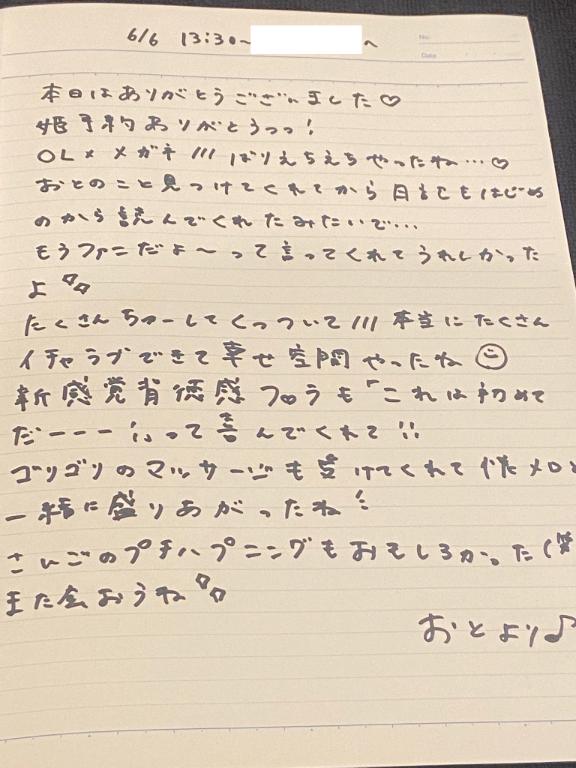 6/6 13:30〜
へ
No.
Date
本日はありがとうございました♡
姫予約ありがとうっっ!
OL×メガネ///ばりえちえちやったね…♡
おとのこと見つけてくれてから日记もはじめ
のから読んでくれたみたいで…
もうファンだよ〜って言ってくれてうれしかった
よ
たくさんちゅーしてくっついて///本当にたくさん
イチャラブできて幸せ空間やったね
新感覚背徳感フロうも「これは初めて
だーーー!」って喜んでくれて!!
ゴリゴリのマッサージも受けてくれて
一緒に盛りあがったね!
さいごのプチハプニングもおもしろかった(笑
また会おうね
おとより♪